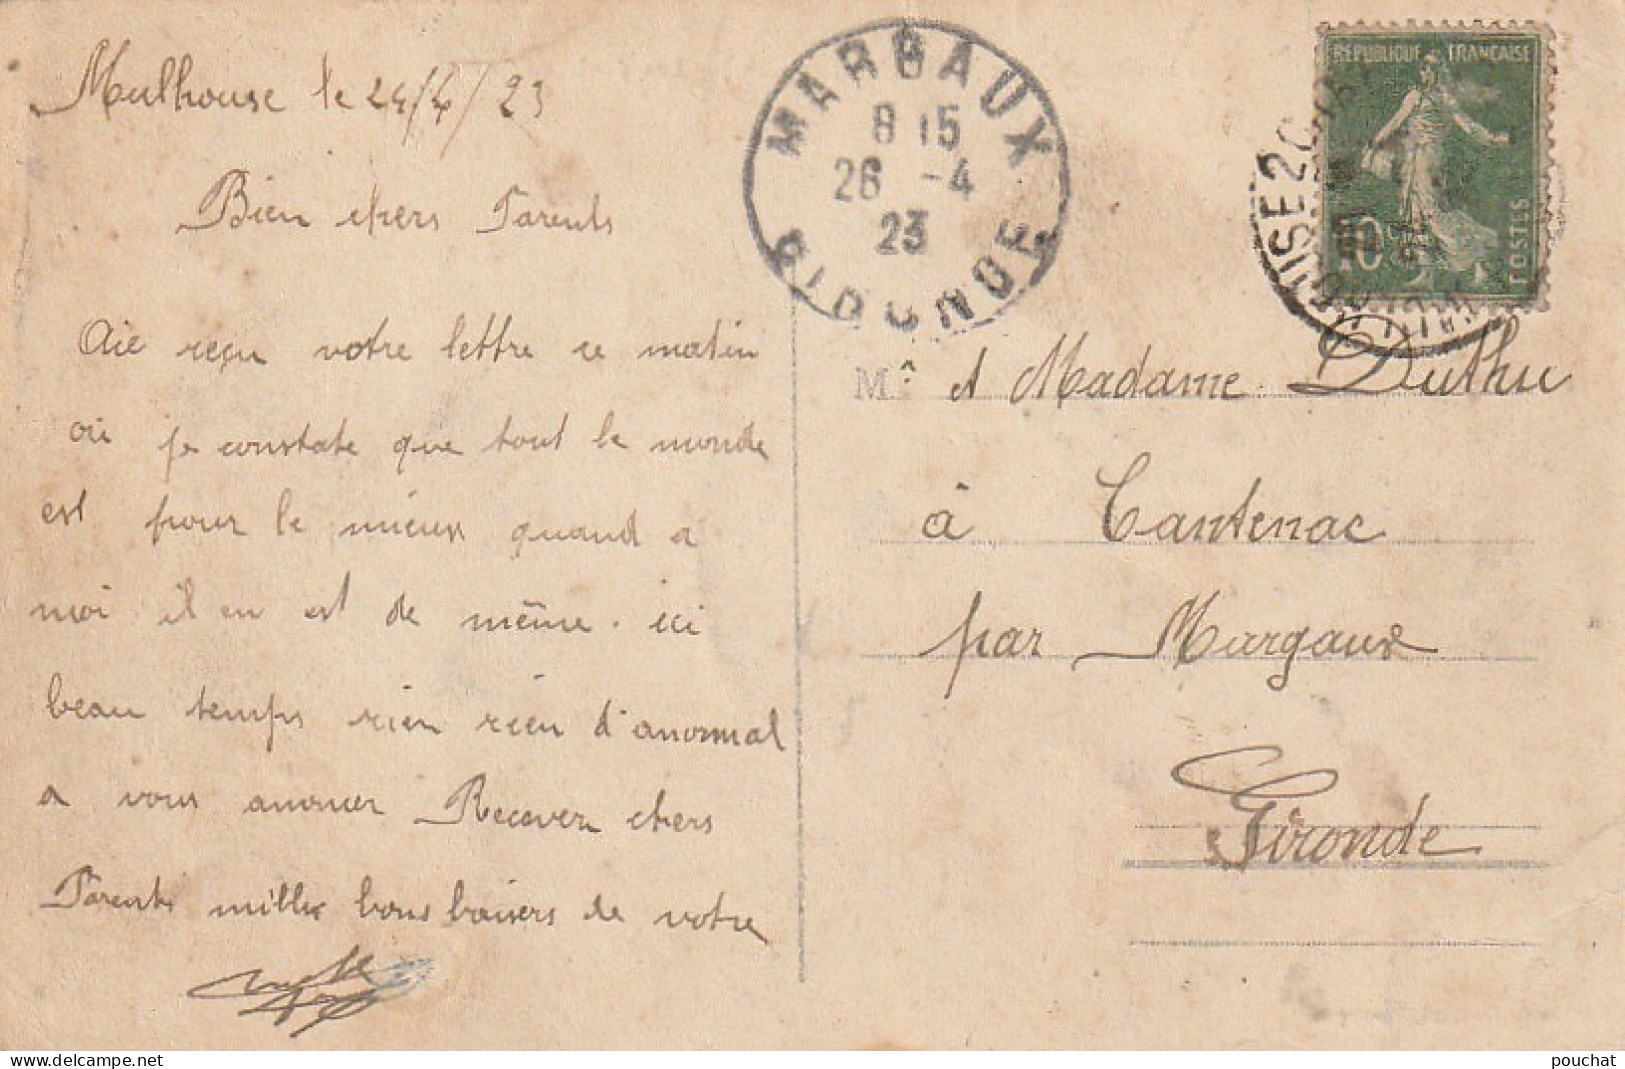 Mulhouse le 24/4/23
Bien chers Parents
Aie reçu votre lettre ce matin
où je constate que tout le monde
est pour le mieux quand a
moi il en est de même. ici
beau temps rien rien d'anormal
a vous anoncer Recever chers
Parents mille bons baisers de votre
MARGAUX
8 15
26 -4
23
GIRONDE
REPUBLIQUE FRANÇAISE
10c
POSTES
Mr et Madame Duthu
à Cantenac
par Margaux
Gironde
pouchat